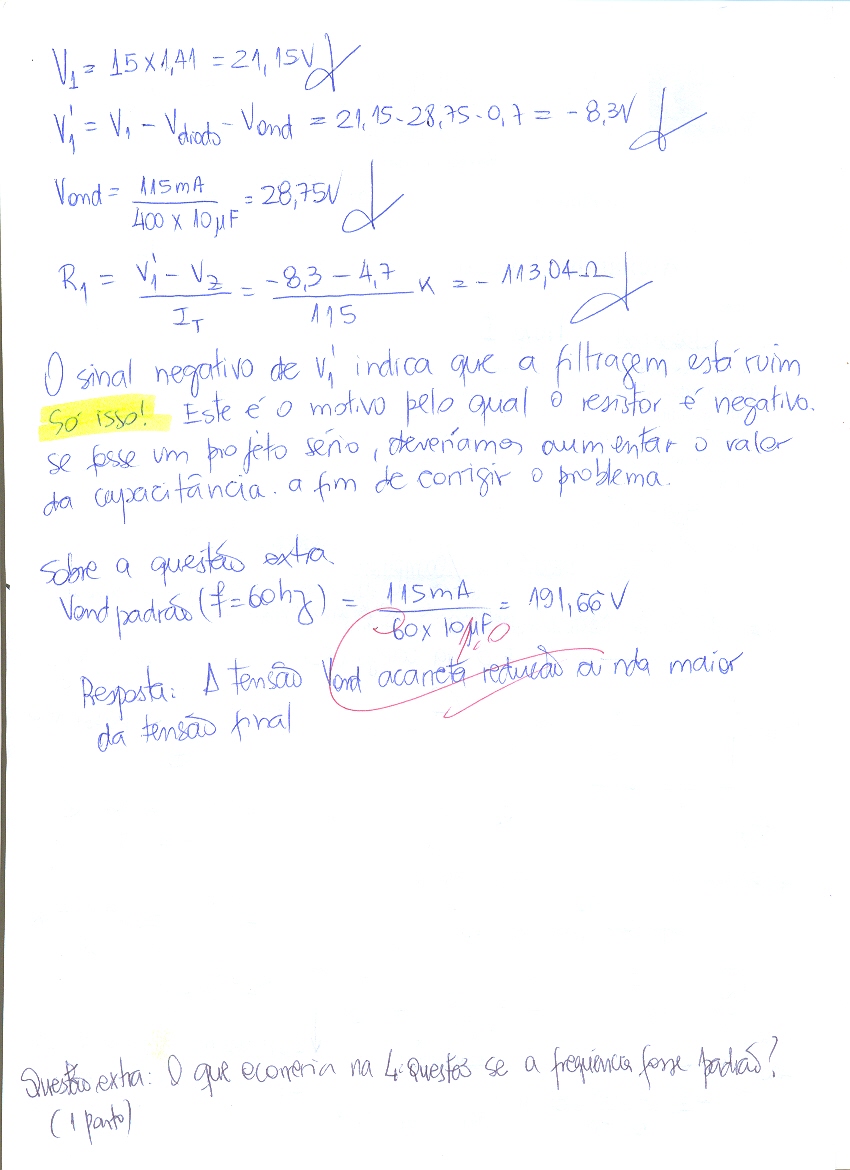 V₁ = 15 x 1,41 = 21,15V
V₁' = V₁ - Vdiodo - Vond = 21,15 - 28,75 - 0,7 = - 8,3V
Vond = 115mA / 400 x 10µF = 28,75V
R₁ = V₁' - VZ / IT = -8,3 - 4,7 / 115 K = - 113,04 Ω
O sinal negativo de V₁' indica que a filtragem está ruim
Só isso! Este é o motivo pelo qual o resistor é negativo.
se fosse um projeto sério, deveríamos aumentar o valor
da capacitância. a fim de corrigir o problema.
Sobre a questão extra.
Vond padrão (f=60hz) = 115mA / 60 x 10µF = 191,66 V
1,0
Resposta: A tensão Vond acaneta redução ainda maior
da tensão final
Questão extra: O que ocorreria na 4ª Questão se a frequência fosse padrão?
(1 ponto)